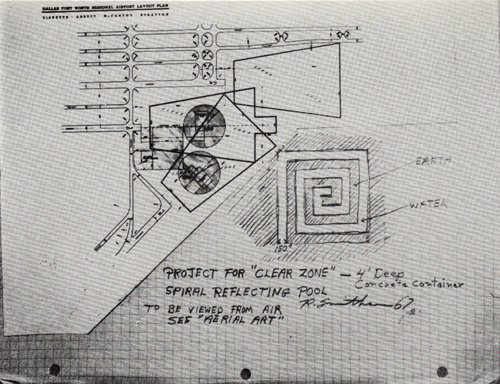 DALLAS FORT WORTH REGIONAL AIRPORT LAYOUT PLAN
TIPPETTS · ABBETT · McCARTHY · STRATTON
EARTH
WATER
150'
PROJECT FOR "CLEAR ZONE" — 4' Deep
Concrete Container
SPIRAL REFLECTING POOL
R. Smithson 67
TO BE VIEWED FROM AIR
SEE "AERIAL ART"